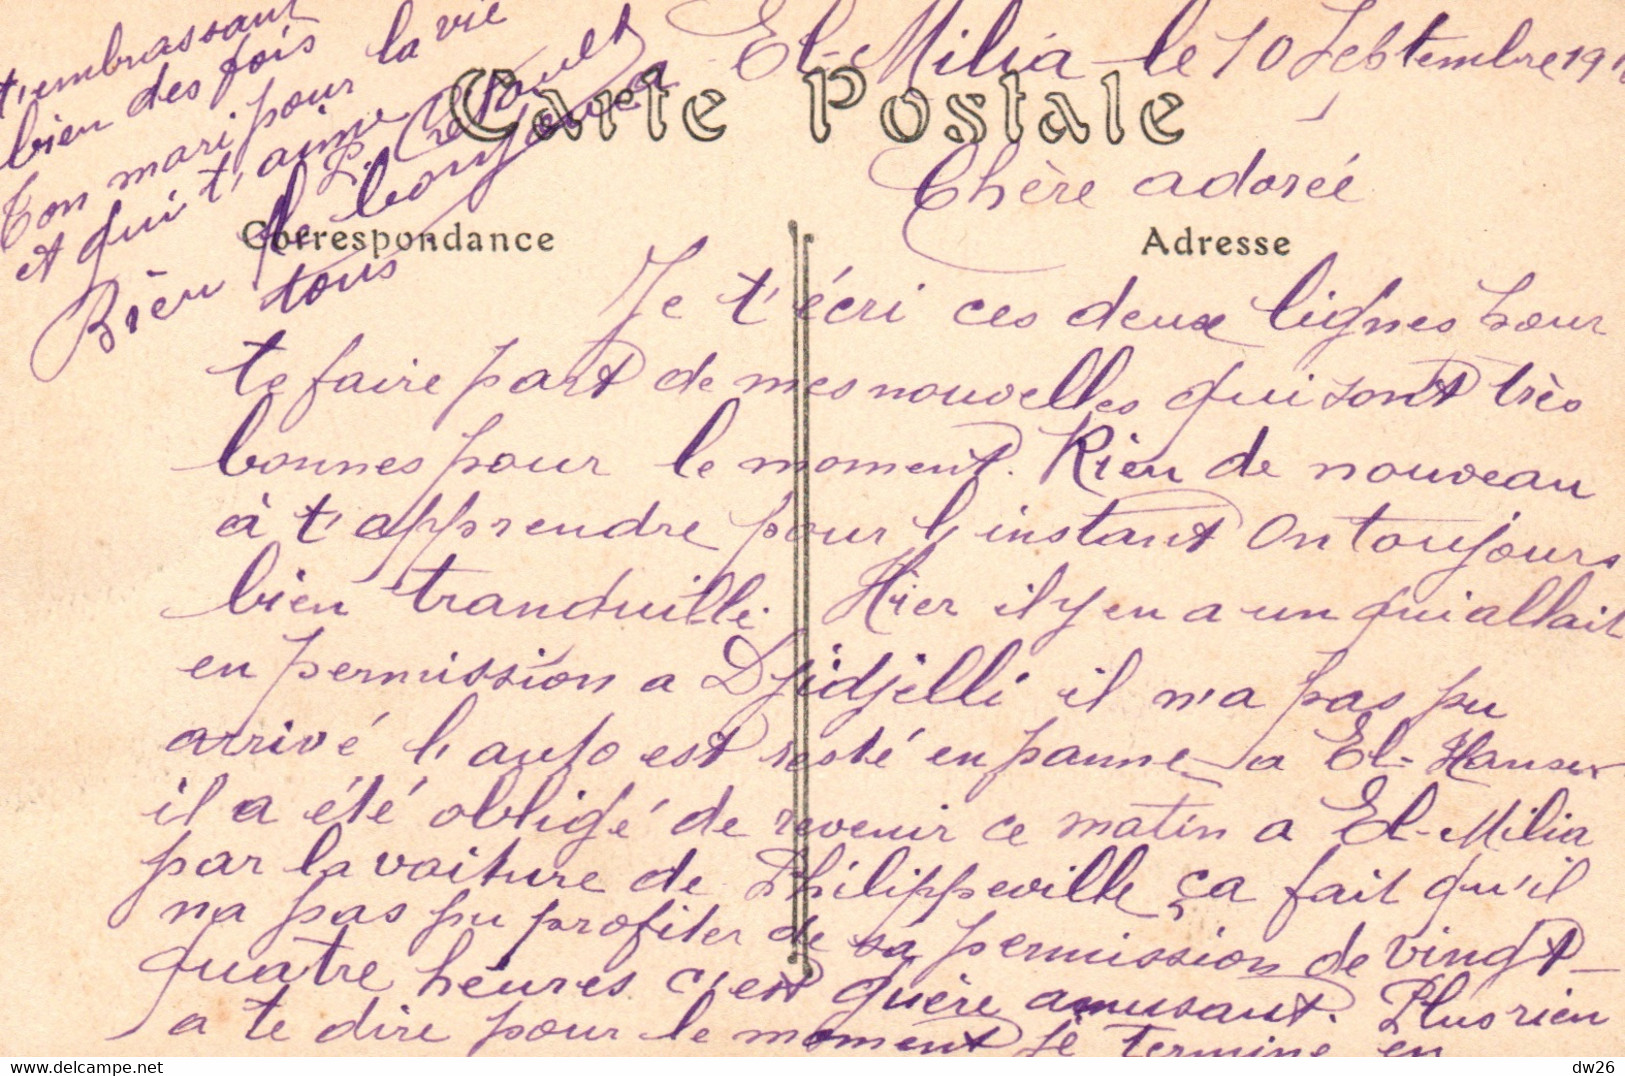 El-Milia le 10 Septembre 191
Carte Postale
Chère adorée
Correspondance
Adresse
Je t'écri ces deux lignes pour
te faire part de mes nouvelles qui sont très
bonnes pour le moment. Rien de nouveau
à t'apprendre pour l'instant On toujours
bien tranquille. Hier il y en a un qui allait
en permission a Djidjelli il n'a pas pu
arrivé l'auto est resté en panne a El-Hanser
il a été obligé de revenir ce matin a El-Milia
par la voiture de Philippeville ça fait qu'il
na pas pu profiter de sa permission de vingt-
quatre heures c'est guère amusant. Plus rien
a te dire pour le moment Je termine en
t'embrassant
bien des fois
Ton mari pour la vie
et qui t'aime
Bien le bonjour a
tous
delcampe.net
dw26